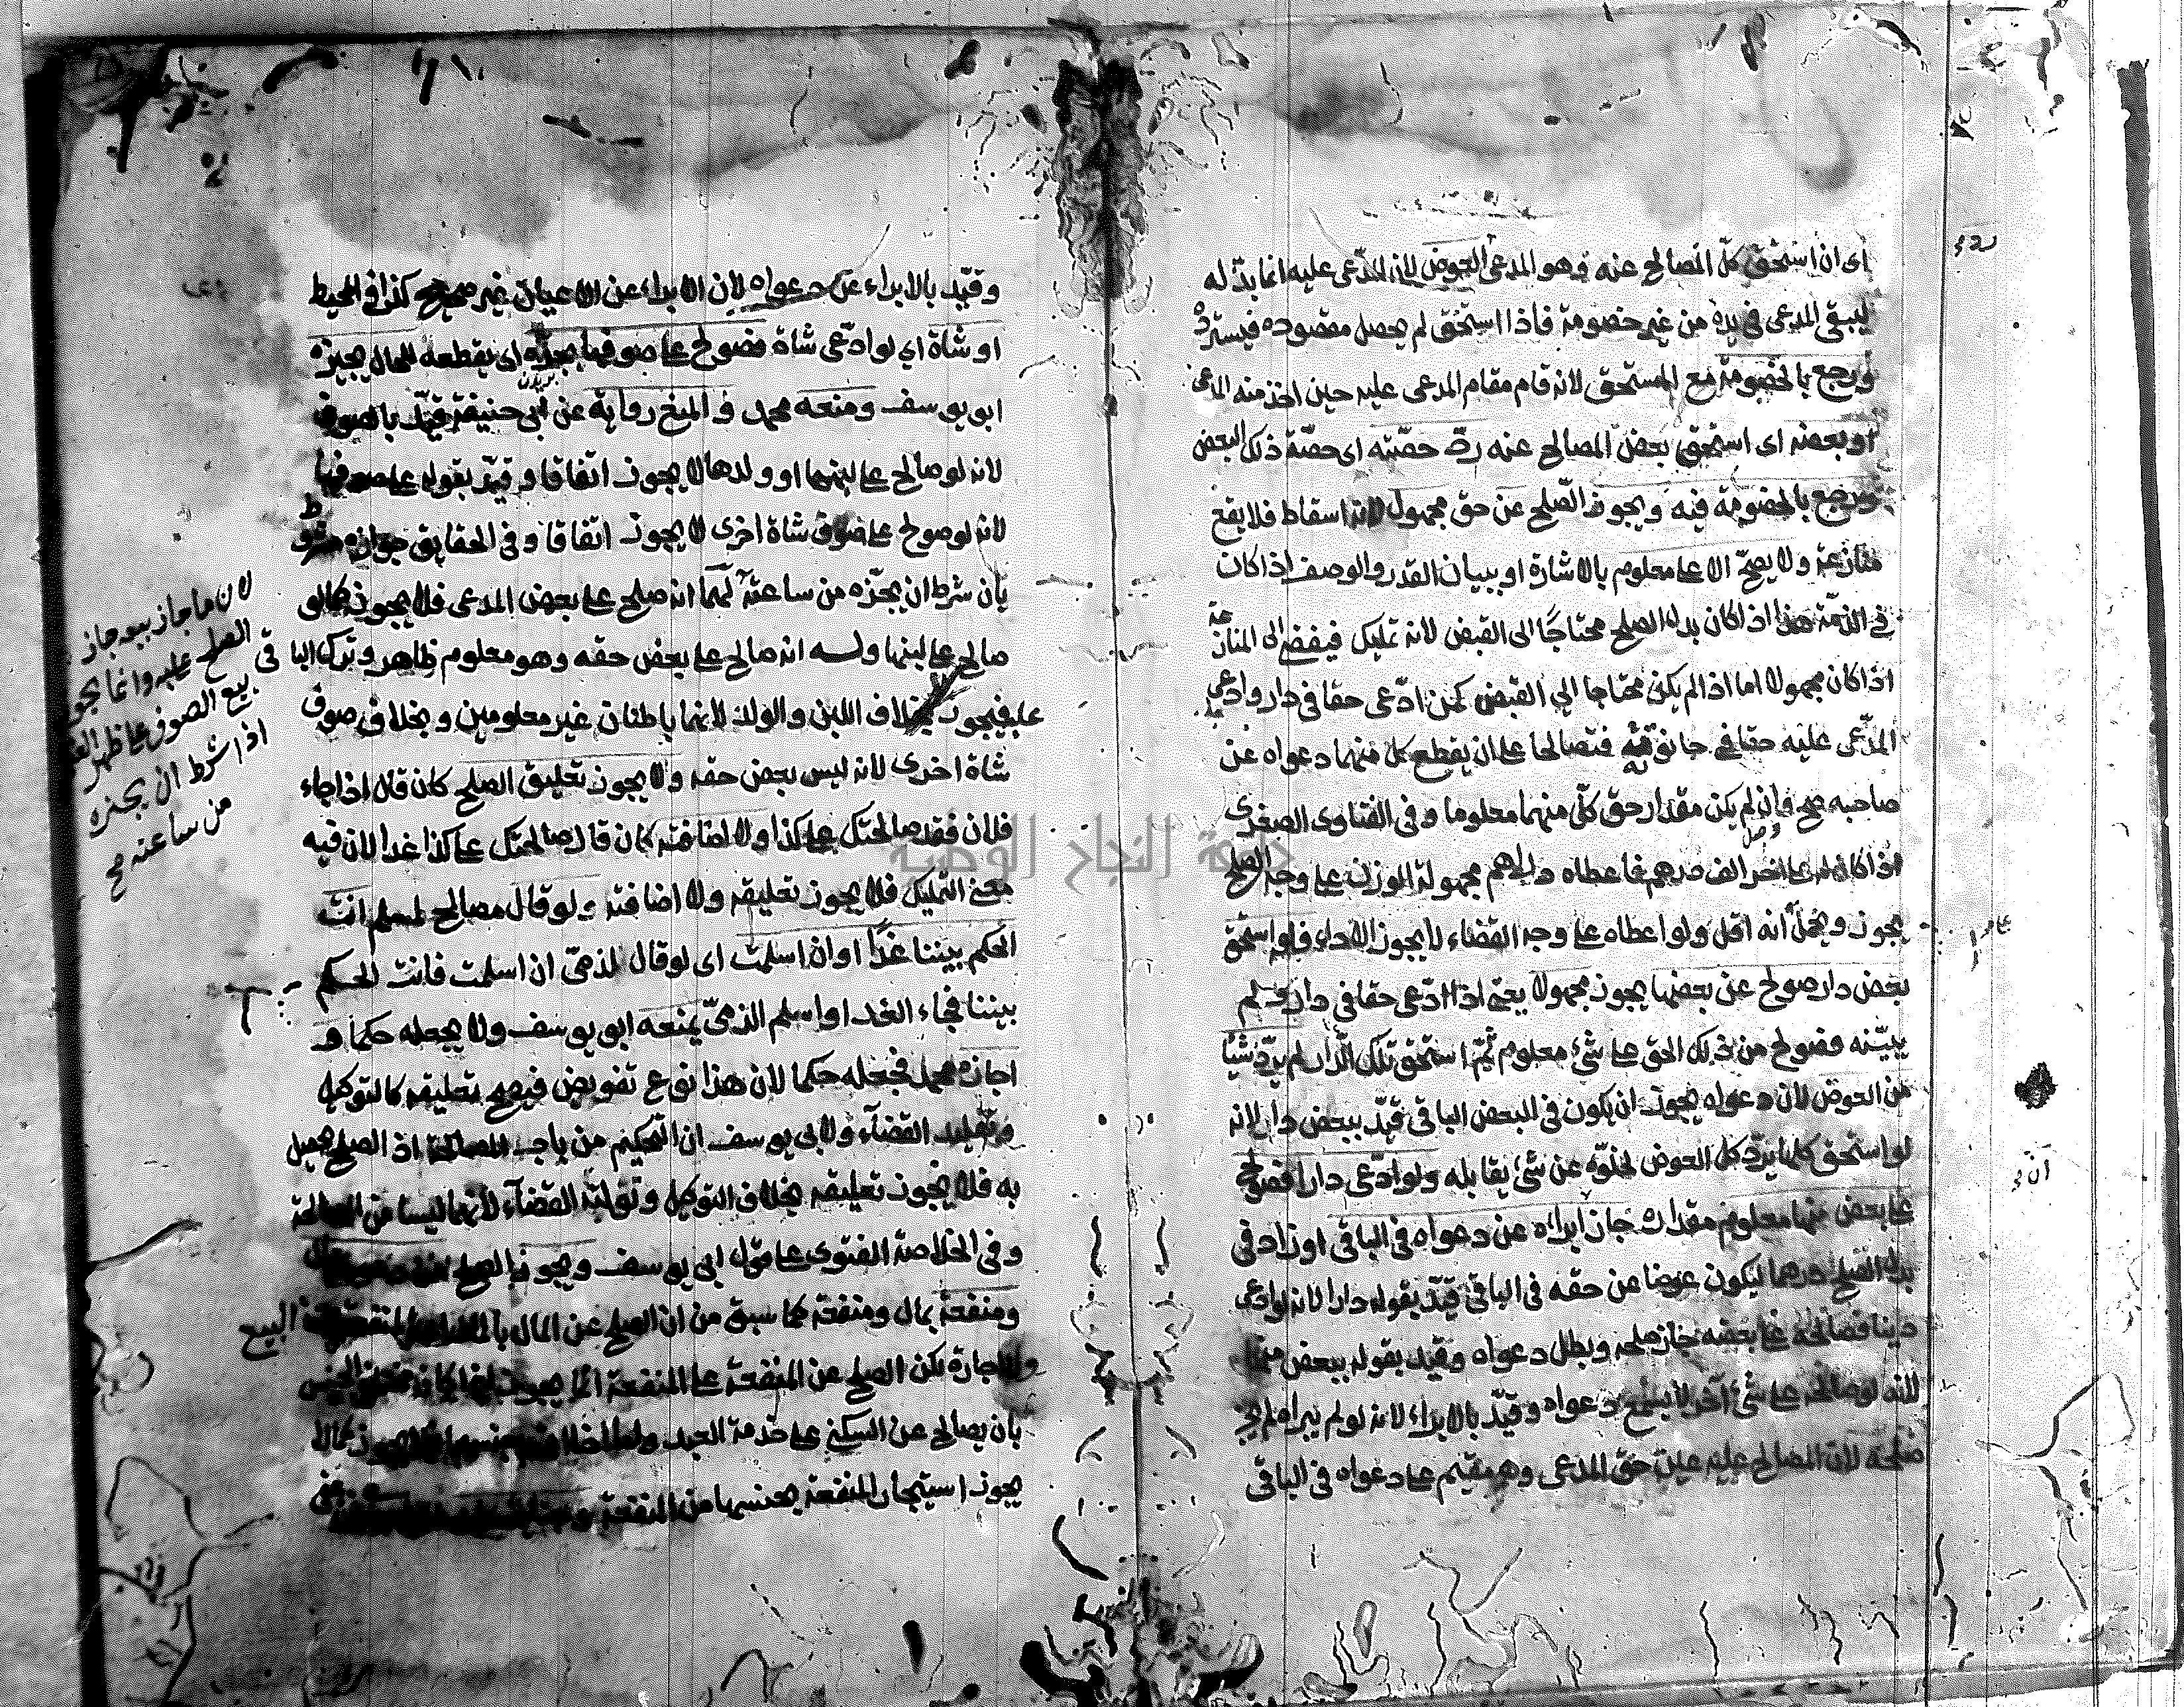 اى ان استحق كل المصالح عنه وهو المدعى العوض لان المدعى عليه انما بذله
ليبقى المدعى فى يده من غير خصومة فاذا استحق لم يحصل مقصوده فيسترده
ويرجع بالخصومة مع المستحق لانه قام مقام المدعى عليه حين اخذ منه المدعى
او بعضه اى استحق بعض المصالح عنه رد حصته اى حصة ذلك البعض
ويرجع بالخصومة فيه ويجوز الصلح عن حق مجهول لانه اسقاط فلا يقع
منازعة ولا يصح الا على معلوم بالاشارة او ببيان القدر والوصف اذا كان
فى الذمة هذا اذا كان بدل الصلح محتاجا الى القبض لانه تمليك فيفضى الى المنازعة
اذا كان مجهولا اما اذا لم يكن محتاجا الى القبض كمن ادعى حقا فى دار وادعى
المدعى عليه حقا فى حانوته فتصالحا على ان يقطع كل منهما دعواه عن
صاحبه صح وان لم يكن مقدار حق كل منهما معلوما وفى الفتاوى الصغرى
اذا كان له على اخر الف درهم فاعطاه دراهم مجهولة الوزن على وجه الصلح
يجوز ويحمل انه اقل ولو اعطاه على وجه القضاء لا يجوز الاداء فلو استحق
بعض دار صولح عن بعضها يجوز مجهولا يعنى اذا ادعى حقا فى دار ولم
يبينه فصولح من ذلك الحق على شئ معلوم ثم استحق تلك الدار لم يرد شيأ
من العوض لان دعواه يجوز ان يكون فى البعض الباقى قيد ببعض دار لانه
لو استحق كلها يرد كل العوض لخلوه عن شئ يقابله ولو ادعى دارا فصولح
على بعض منها معلوم مقداره جاز ابراؤه عن دعواه فى الباقى او زاد فى
بدل الصلح درهما ليكون عوضا عن حقه فى الباقى قيد بقوله دارا لانه لو ادعى
دينا فصالحه على بعضه جاز صلحه وبطل دعواه وقيد بقوله ببعض منها
لانه لو صالحه على شئ آخر لا يسمع دعواه وقيد بالابراء لانه لو لم يبراه لم يجز
صلحه لان المصالح عليه عين حق المدعى وهو مقيم على دعواه فى الباقى
وقيد بالابراء عن دعواه لان الابراء عن الاعيان غير صحيح كذا فى المحيط
او شاة اي لو ادعى شاة فصولح على صوفها يجزه اى يقطعه للحال يجيزه
ابو يوسف ومنعه محمد و رواية عن ابى حنيفة قيد بالصوف
لانه لو صالح على لبنها او ولدها لا يجوز اتفاقا وقيد بقوله على صوفها
لانه لو صولح على صوف شاة اخرى لا يجوز اتفاقا وفى الحقايق جوازه مشروط
بان شرط ان يجزه من ساعته لهما انه صلح على بعض المدعى فلا يجوز كما لو
صالح على لبنها وله انه صالح على بعض حقه وهو معلوم ظاهر وترك الباقى
عليه فيجوز بخلاف اللبن والولد لانهما باطنان غير معلومين وبخلاف صوف
شاة اخرى لانه ليس بعض حقه ولا يجوز تعليق الصلح كان قال اذا جاء
فلان فقد صالحتك على كذا ولا اضافته كان قال صالحتك على كذا غدا لان فيه
معنى التمليك فلا يجوز تعليقه ولا اضافته ولو قال مصالح لمسلم انت
الحكم بيننا غدًا او ان اسلمت اى لو قال لذمى ان اسلمت فانت الحكم
بيننا فجاء الغد او اسلم الذمى يمنعه ابو يوسف ولا يجعله حكما و
اجازه محمد فجعله حكما لان هذا نوع تفويض فيصح تعليقه كالتوكيل
وتقليد القضآء ولابى يوسف ان التحكيم من باب المصالحة اذ الصلح يحصل
به فلا يجوز تعليقه بخلاف التوكيل وتولية القضآء لانهما ليسا من المصالحة
وفى الخلاصة الفتوى على قول ابى يوسف ويجوز الصلح عن دعوى مال
ومنفعة بمال ومنفعة كما سبق من ان الصلح عن المال بالمال البيع
والاجارة لكن الصلح عن المنفعة على المنفعة الجنس
بان يصالح عن السكنى على خدمة العبد
يجوز استيجار المنفعة بجنسها من المنفعة
لان ما جاز بيعه جاز
الصلح عليه وانما يجوز
بيع الصوف على ظهر الغنم
اذا شرط ان يجزه
من ساعته صح